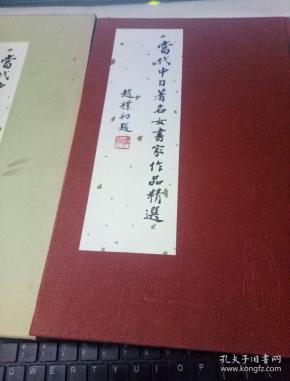 當代中日著名女書家作品精選
趙樸初題
當代
孔夫子旧书网
www.kongfz.com